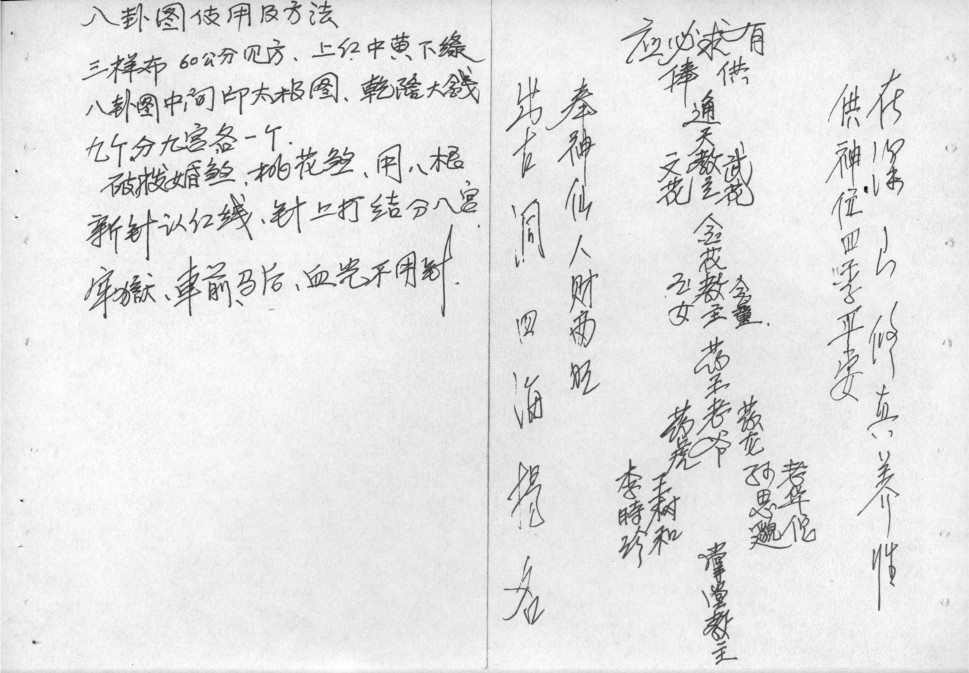 八卦图使用及方法
三样布60公分见方、上红中黄下绿
八卦图中间印太极图、乾隆大錢
九个分九宫各一个.
破拨婚煞、桃花煞、用八根
新针认红线、针上打结分八宫.
牢獄、車前马后、血光不用針.
有求必应
供俸
通天教主
武花
文花
金花教主
金童.
玉女
药王老爷
药龙
药虎
老华佗
孙思邈
王树和
李時珍
掌堂教主
在深山修真养性
供神位四季平安
奉神仙人财両旺
出古洞四海揚名